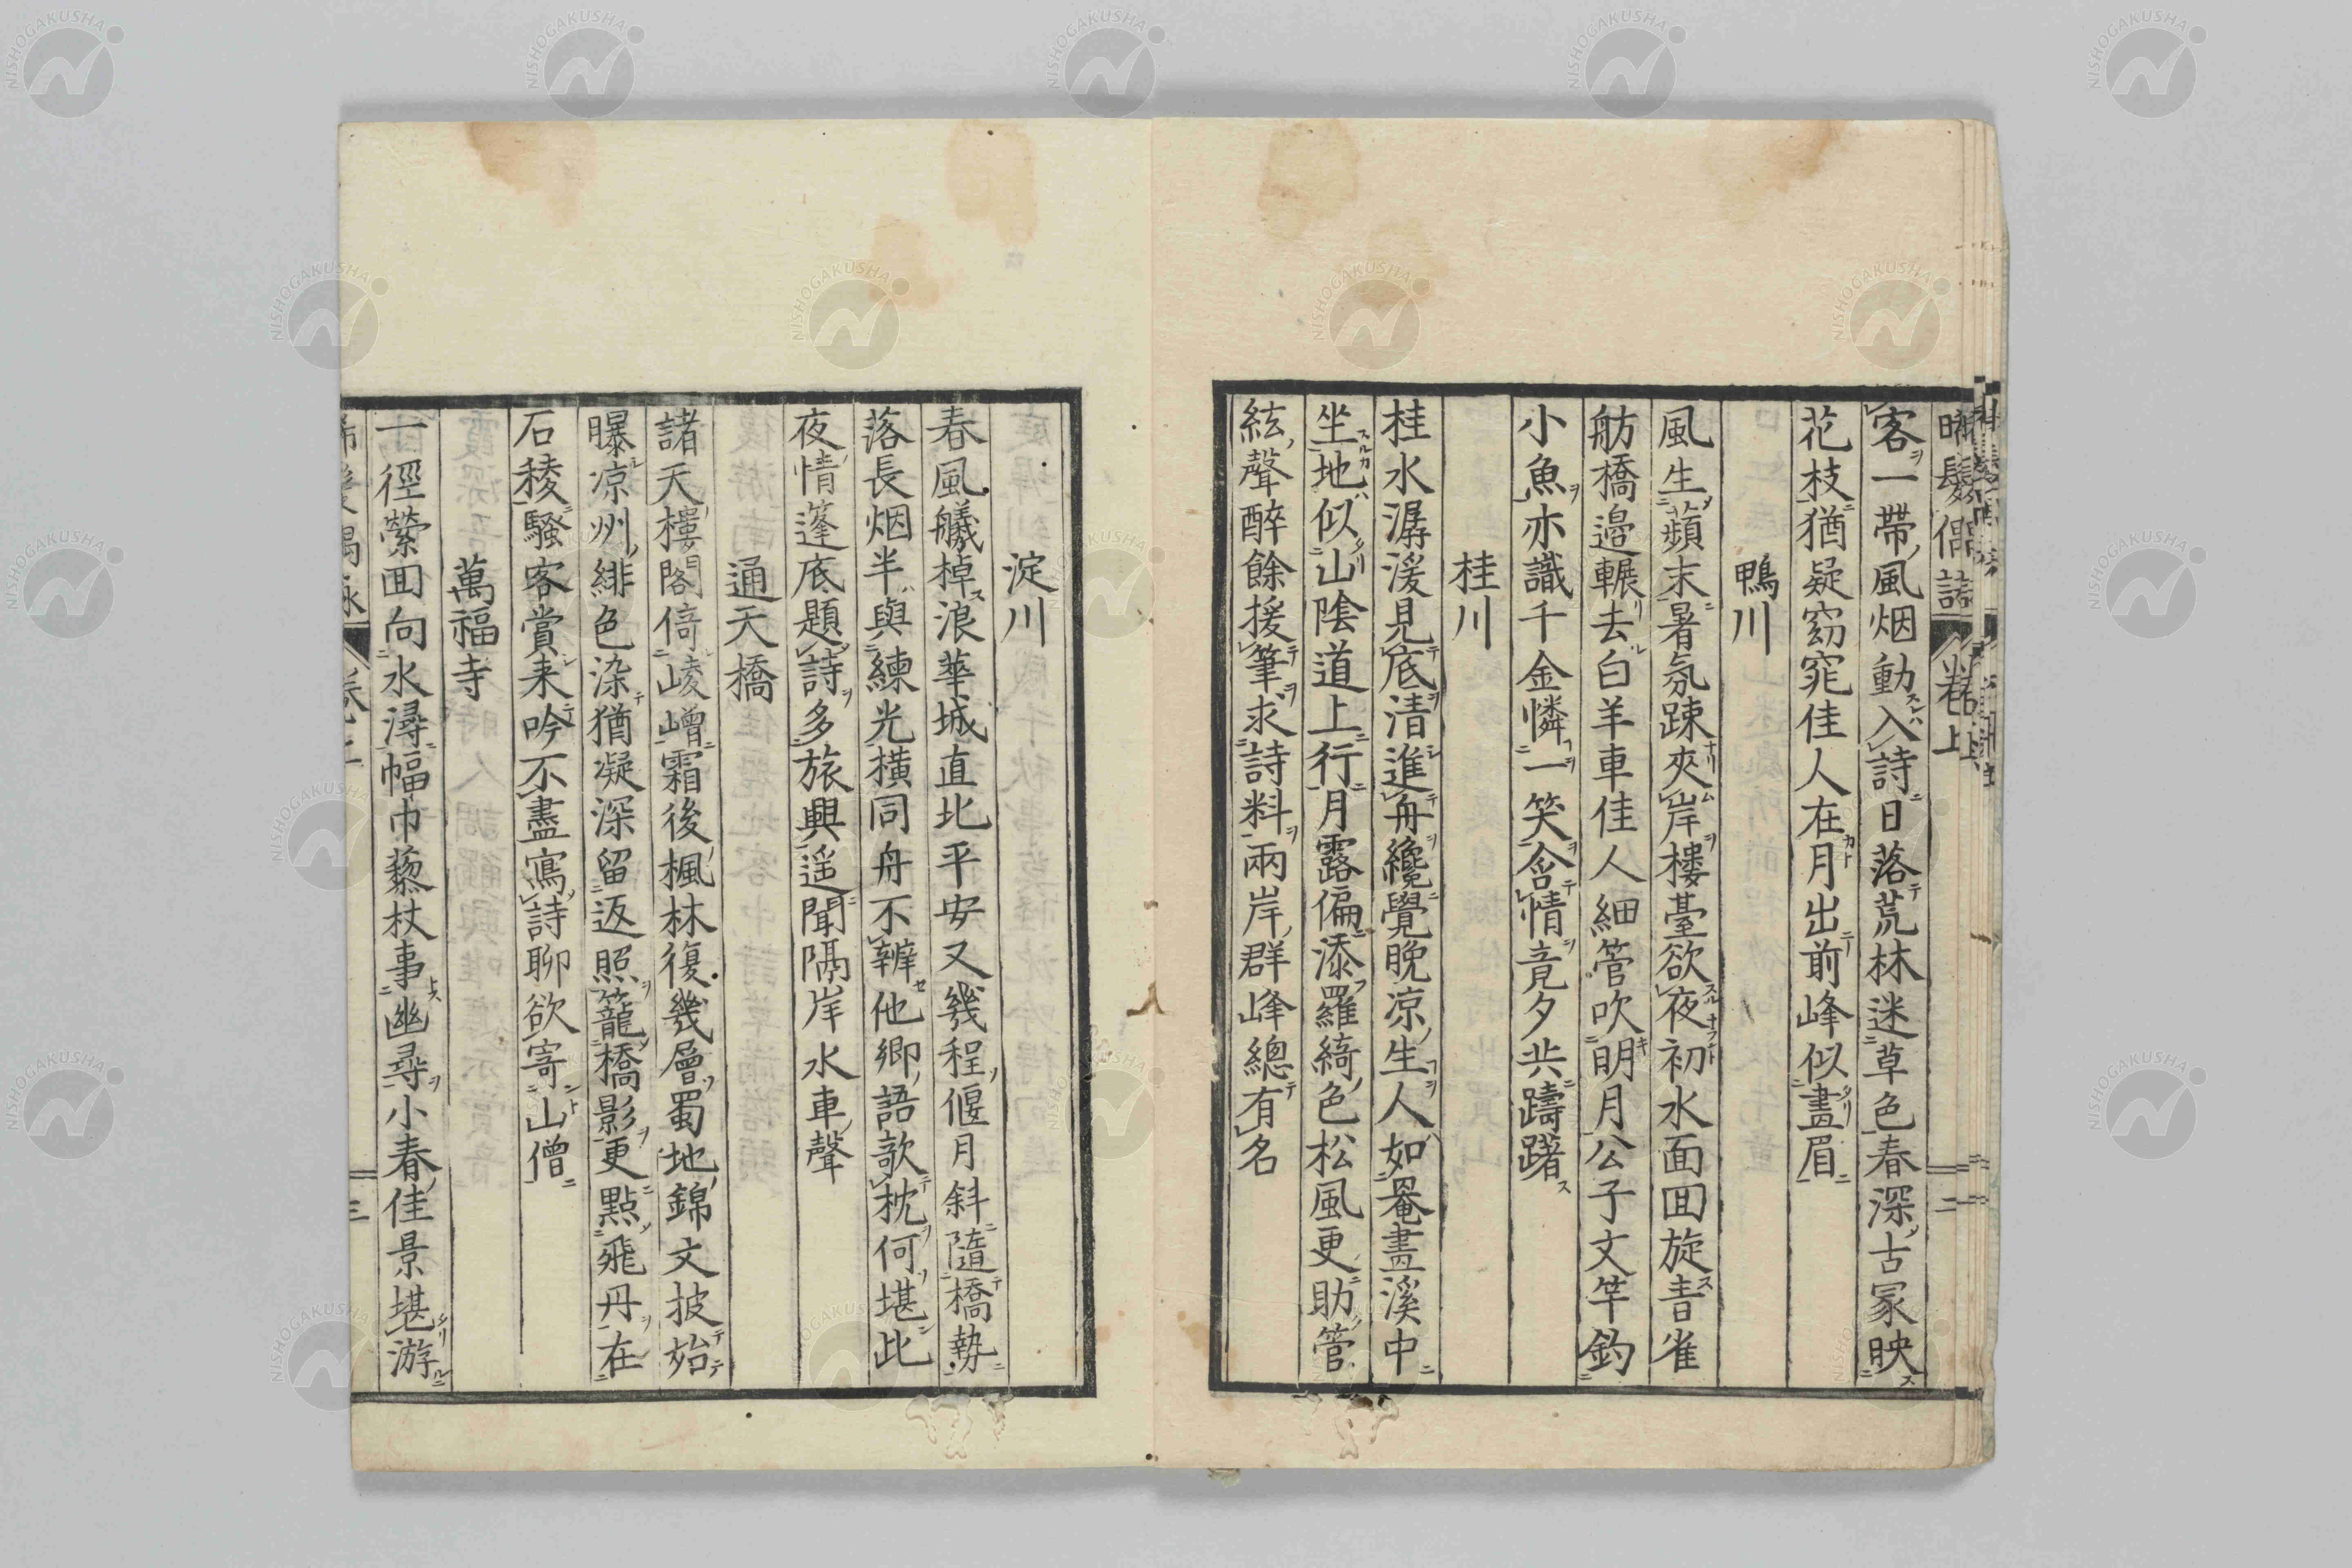 客一帶風烟動入詩日落荒林迷草色春深古冢映
花枝猶疑窈窕佳人在月出前峰似畫眉
鴨川
風生蘋末暑氛踈夾岸樓臺欲夜初水面囬旋青雀
舫橋邉輾去白羊車佳人細管吹明月公子文竿釣
小魚亦識千金憐一笑含情竟夕共躊躇
桂川
桂水潺湲見底清進舟纔覺晩凉生人如罨畫溪中
坐地似山陰道上行月露偏添羅綺色松風更助管
絃聲醉餘援筆求詩料兩岸群峰總有名
淀川
春風艤棹浪華城直北平安又幾程偃月斜隨橋勢
落長烟半與練光橫同舟不辨他鄉語欹枕何堪此
夜情篷底題詩多旅興遥聞隔岸水車聲
通天橋
諸天樓閣倚崚嶒霜後楓林復幾層蜀地錦文披始
曝凉州緋色染猶凝深留返照籠橋影更點飛丹在
石稜騷客賞来吟不盡寫詩聊欲寄山僧
萬福寺
一徑縈囬向水潯幅巾藜杖事幽尋小春佳景堪游
卷上
二
三
NISHOGAKUSHA